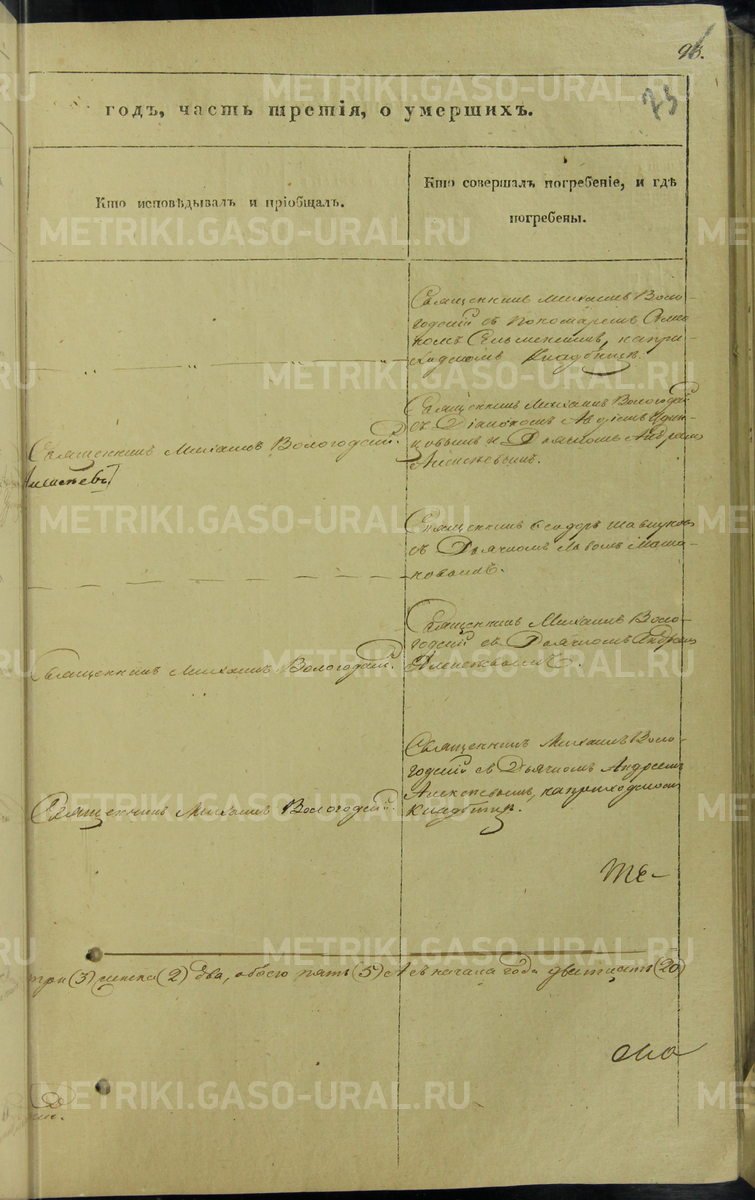 96.
73
годъ, часть третія, о умершихъ.
Кто исповѣдывалъ и пріобщалъ.
Кто совершалъ погребеніе, и гдѣ
погребены.
Священникъ Михаилъ Воло-
годскій съ Пономаремъ
на при-
ходскомъ Кладбищѣ.
Священникъ Михаилъ Вологодскій.
Священникъ Михаилъ Вологодскій
съ Діакономъ
и Дьячкомъ Андреемъ
Алексѣевымъ.
Священникъ Ѳеодоръ
съ Дьячкомъ
Священникъ Михаилъ Вологодскій.
Священникъ Михаилъ Воло-
годскій съ Дьячкомъ Андреемъ
Алексѣевымъ.
Священникъ Михаилъ Вологодскій.
Священникъ Михаилъ Воло-
годскій съ Дьячкомъ Андреемъ
Алексѣевымъ, на приходскомъ
Кладбищѣ.
три (3) женска (2) два, обоего пять (5) А съ начала года двадцать (20)
METRIKI.GASO-URAL.RU